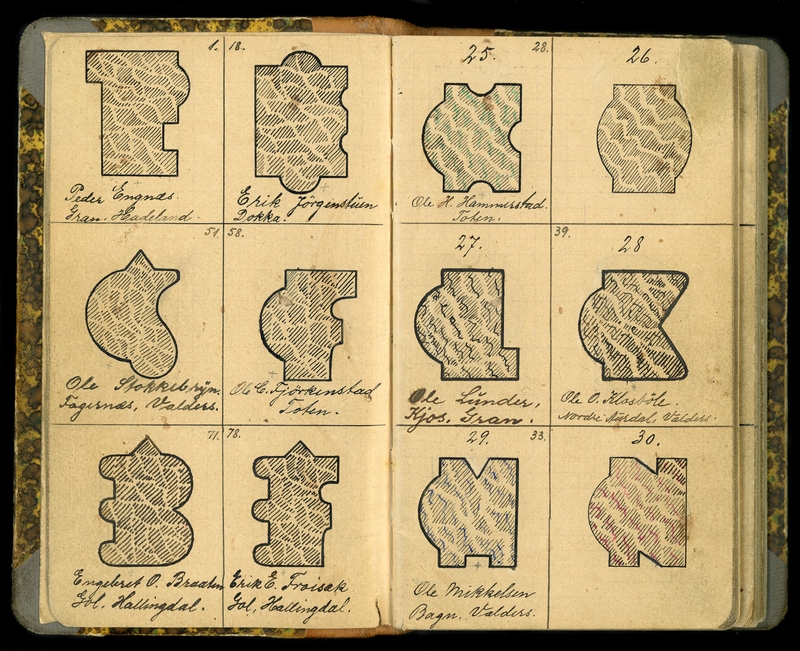 1.
Peder Engnæs.
Gran. Hadeland.
18.
Erik Jörgenstuen
Dokka.
51.
Ole Stokkebryn.
Fagernæs, Valders.
58.
Ole C. Fjörkenstad
Toten.
71.
Engebret O. Braaten
Gol, Hallingdal.
78.
Erik E. Froisak
Gol, Hallingdal.
25.
28.
Ole H. Hammerstad.
Toten.
26.
27.
Ole Lunder,
Kjos, Gran.
39.
28
Ole O. Klosböle.
Nordre Aurdal, Valders.
29.
33.
Ole Mikkelsen
Bagn, Valders.
30.